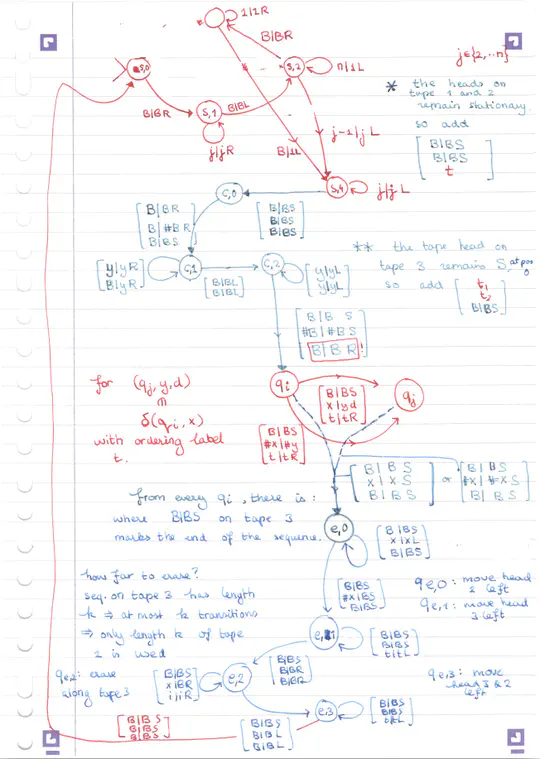 1|1R
B|BR
s,0
s,2
n|1L
j∈{2,..n}
B|BR
s,1
B|BL
j|jR
B|1L
j-1|jL
s,4
j|jL
* the heads on
tape 1 and 2
remain stationary.
so add
B|BS
B|BS
t
c,0
B|BR
B|#BR
B|BS
B|BS
B|BS
B|BS
y|yR
B|yR
c,1
B|BL
B|BL
c,2
y|yL
y|yL
** the tape head on
tape 3 remains S, at pos 0
so add
t₁
t₂
B|BS
B|B S
#B|#BS
B|BR !
for (qj,y,d)
∈
δ(qi,x)
with ordering label
t.
qi
qj
B|BS
x|yd
t|tR
B|BS
#x|#y
t|tR
B|BS
x|xS
B|BS
or
B|BS
#x|#xS
B|BS
from every qi, there is:
where B|BS on tape 3
marks the end of the sequence.
e,0
B|BS
x|xL
B|BS
how far to erase?
seq. on tape 3 has length
k ⇒ at most k transitions
⇒ only length k of tape
2 is used
B|BS
#x|BS
B|BS
qe,0: move head
2 left
qe,1: move head
3 left
e,1
B|BS
B|BS
t|tL
qe,2: erase
along tape 3
B|BS
x|BR
i|iR
e,2
B|BS
B|BR
B|BR
qe,3: move
head 3 & 2
left
e,3
B|BS
B|BS
B|BS
B|BS
B|BL
B|BL
B|BS
B|BS